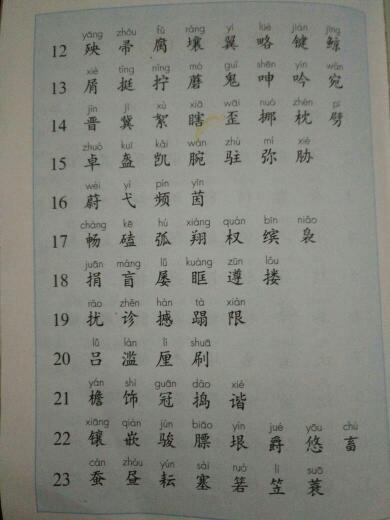 yāng zhǒu fǔ rǎng yì lüè jiàn jīng
12 殃 帚 腐 壤 翼 略 键 鲸
xiè tǐng nǐng mó guǐ shēn yín wǎn
13 屑 挺 拧 蘑 鬼 呻 吟 宛
jìn jì xù xiā wāi nuó zhěn pī
14 晋 冀 絮 瞎 歪 挪 枕 劈
zhuó kuī kǎi wàn zhù mí xié
15 卓 盔 凯 腕 驻 弥 胁
wèi yì pín yīn
16 蔚 弋 频 茵
chàng kē hú xiáng quán bīn niǎo
17 畅 磕 弧 翔 权 缤 袅
juān máng lǚ kuàng zūn lōu
18 捐 盲 屡 眶 遵 搂
rǎo zhěn hàn tà xiàn
19 扰 诊 撼 蹋 限
lǚ làn lí shuā
20 吕 滥 厘 刷
yán shì guān dǎo xié
21 檐 饰 冠 捣 谐
xiāng qiàn jùn biāo yín jué yōu chù
22 镶 嵌 骏 膘 垠 爵 悠 畜
cán zhòu yún sài ruò lì suō
23 蚕 昼 耘 塞 箬 笠 蓑